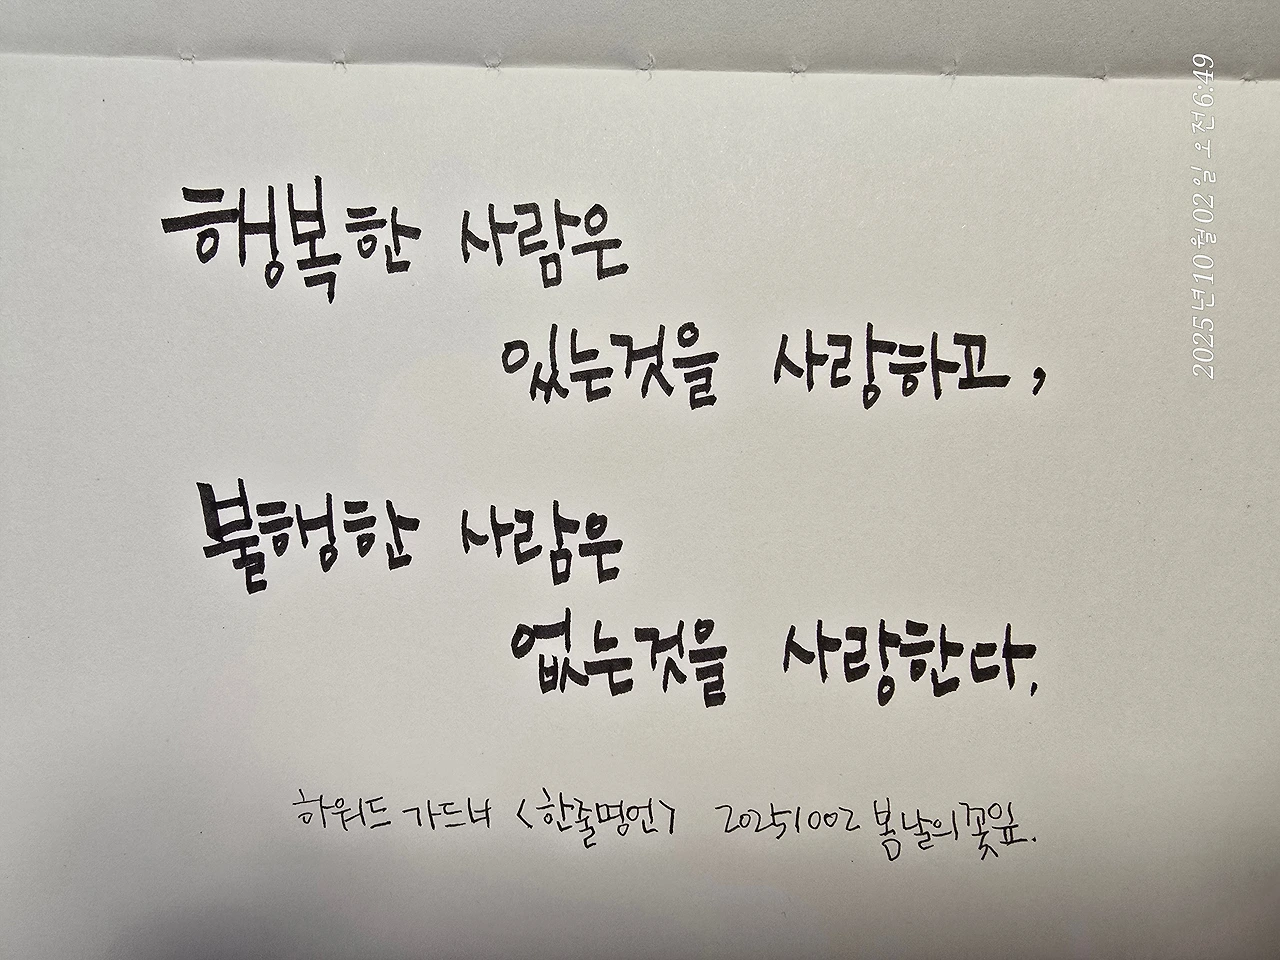 행복한 사람은
있는것을 사랑하고,
불행한 사람은
없는것을 사랑한다.
하워드 가드너 <한줄명언> 20251002 봄날의꽃잎.
2025년 10월 02일 오전 6:49